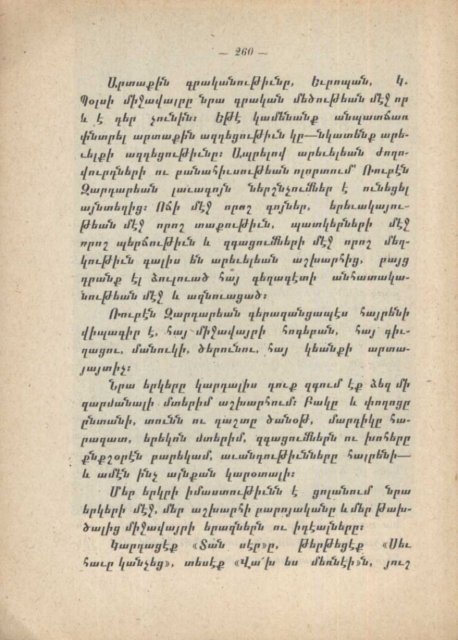 — 260 —
Արտաքին գրականութիւնը, Եւրոպան, Կ.
Պօլսի միջավայրը նրա գրական մեծութեան մէջ որ
և է դեր չունին։ Եթէ կամենանք անպատճառ
փնտրել արտաքին ազդեցութիւն կը—նկատենք արե-
ւելքի ազդեցութիւնը։ Ապրելով արեւելեան ժողո-
վուրդների ու բանահիւսութեան ոլորտում՝ Ռուբէն
Զարդարեան լաւագոյն ներշնչումներ է ունեցել
այնտեղից։ Ոճի մէջ որոշ գոյներ, երեւակայու-
թեան մէջ որոշ տաքութիւն, պատկերների մէջ
որոշ պերճութիւն և զգացումների մէջ որոշ մեղ-
կութիւն գալիս են արեւելեան աշխարհից, բայց
դրանք էլ ձուլուած հայ գեղագէտի անհատակա-
նութեան մէջ և ազնուացած։
Ռուբէն Զարդարեան գերազանցապէս հայրենի
վիպագիր է, հայ միջավայրի հոգեբան, հայ գիւ-
ղացու, մանուկի, ծերունու, հայ կեանքի արտա-
յայտիչ։
Նրա երկերը կարդալիս դուք զգում էք ձեզ մի
զարմանալի մտերիմ աշխարհում։ Բակը և փողոցը
ընտանի, տունն ու դաշտը ծանօթ, մարդիկը հա-
րազատ, երեկոն մտերիմ, զգացումներն ու խոհերը
քնքշօրէն բարեկամ, աւանդութիւնները հայրենի—
և ամէն ինչ այնքան կարօտալի։
Մեր երկրի իմաստութիւնն է ցոլանում նրա
երկերի մէջ, մեր աշխարհի բարոյականը և մեր թախ-
ծալից միջավայրի երազներն ու իդէալները։
Կարդացէք «Տան սէր»ը, թերթեցէք «Սեւ
հաւը կանչեց», տեսէք «Վա՜խ ես մեռնէի»ն, յուշ